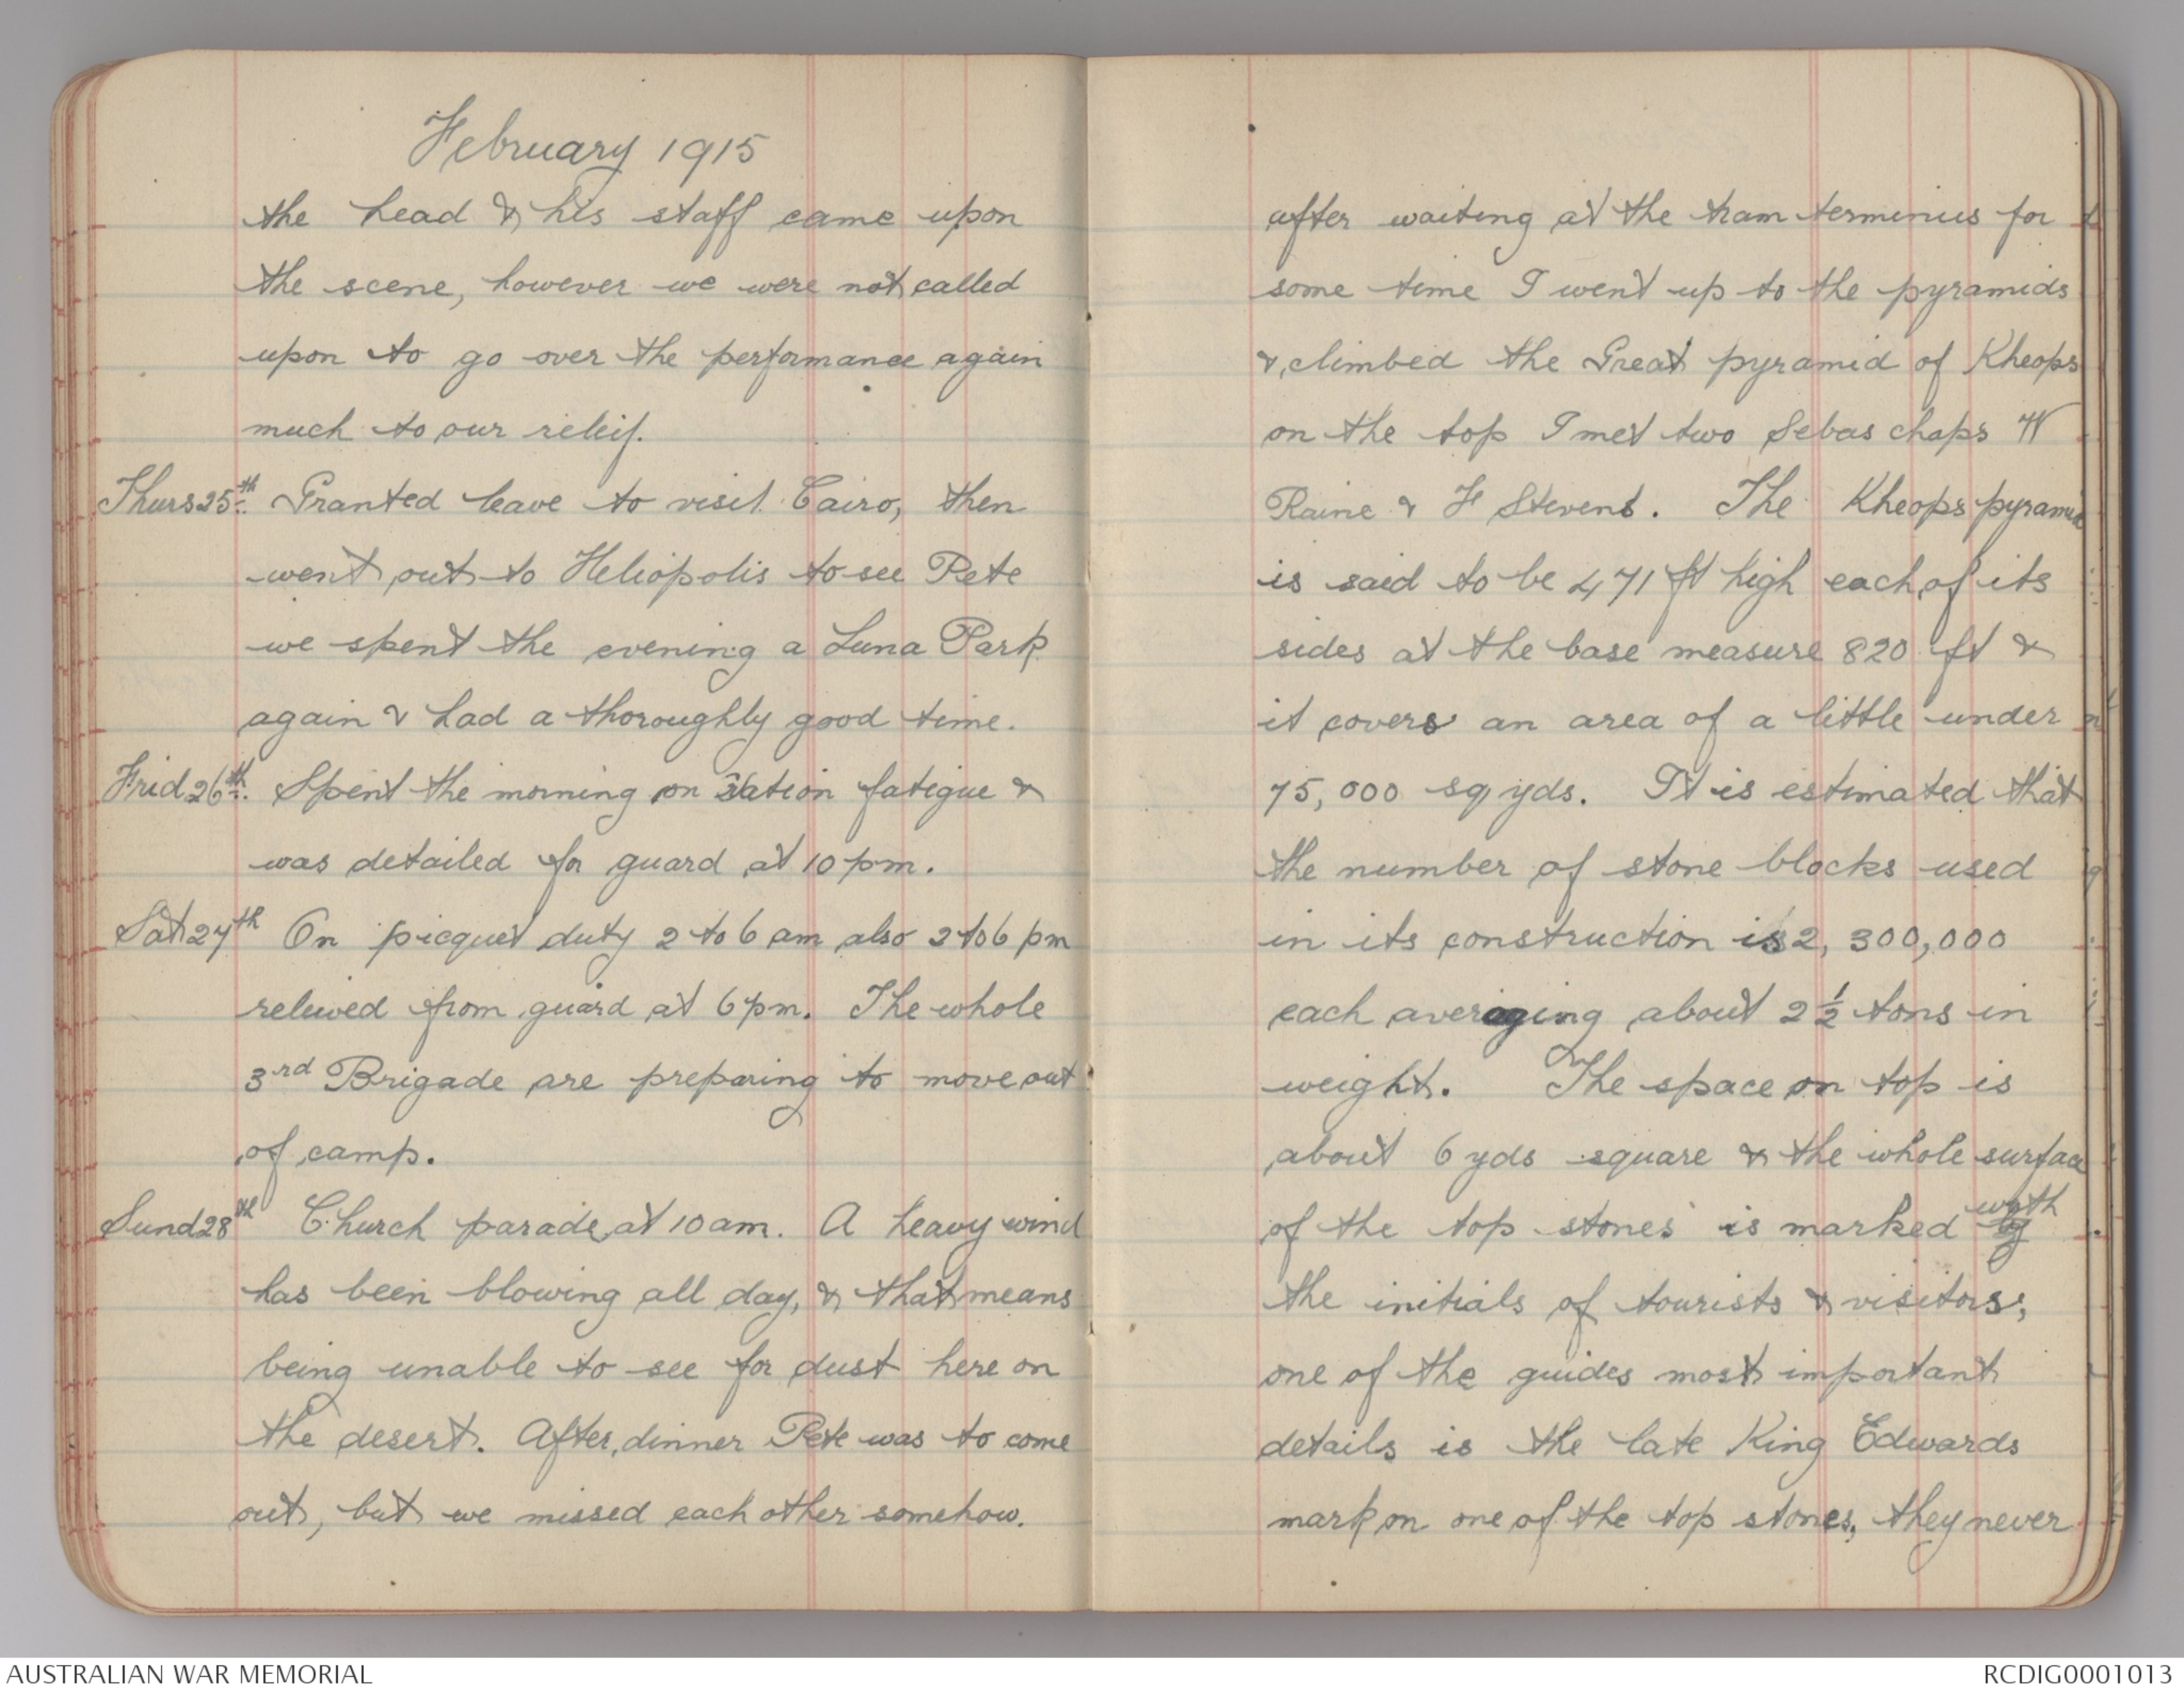 February 1915
the head & his staff came upon
the scene, however we were not called
upon to go over the performance again
much to our releif.
Thurs 25th. Granted leave to visit Cairo, then
went out to Heliopolis to see Pete
we spent the evening a Luna Park
again & had a thoroughly good time.
Frid 26th. Spent the morning on Station fatigue &
was detailed for guard at 10 pm.
Sat 27th On picquet duty 2 to 6 am also 2 to 6 pm
releived from guard at 6 pm. The whole
3rd Brigade are preparing to move out
of camp.
Sund 28th Church parade at 10 am. A heavy wind
has been blowing all day, & that means
being unable to see for dust here on
the desert. After dinner Pete was to come
out, but we missed each other somehow.
after waiting at the tram terminus for
some time I went up to the pyramids
& climbed the Great pyramid of Kheops
on the top I met two Sebas chaps W
Raine & F Stevens. The Kheops pyramid
is said to be 471 ft high each of its
sides at the base measure 820 ft &
it covers an area of a little under
75,000 sq yds. It is estimated that
the number of stone blocks used
in its construction is 2,300,000
each averaging about 2 1/2 tons in
weight. The space on top is
about 6 yds square & the whole surface
of the top stones is marked by with
the initials of tourists & visitors,
one of the guides most important
details is the late King Edwards
mark on one of the top stones, they never
AUSTRALIAN WAR MEMORIAL
RCDIG0001013